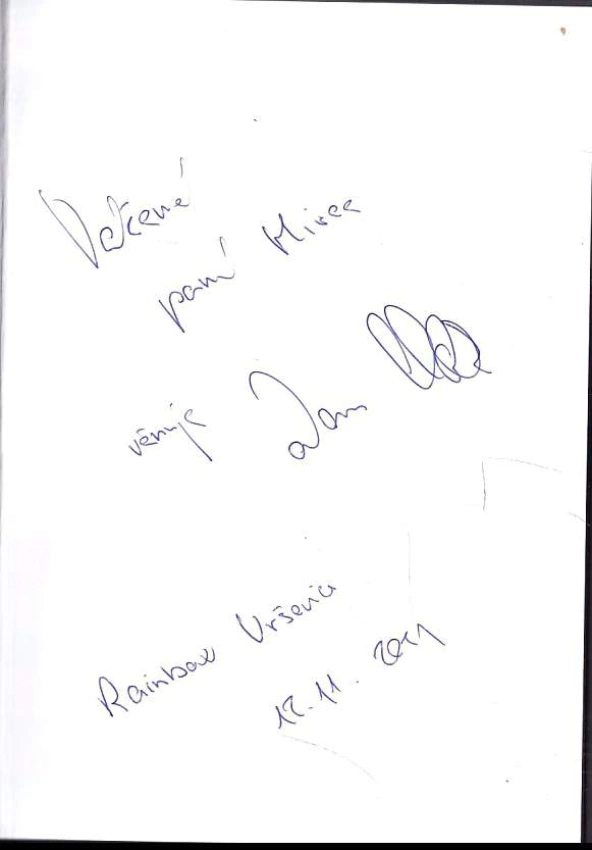 Vážené
paní Mirce
věnuje Jan
Rainbow Vršovice
12.11. 2011